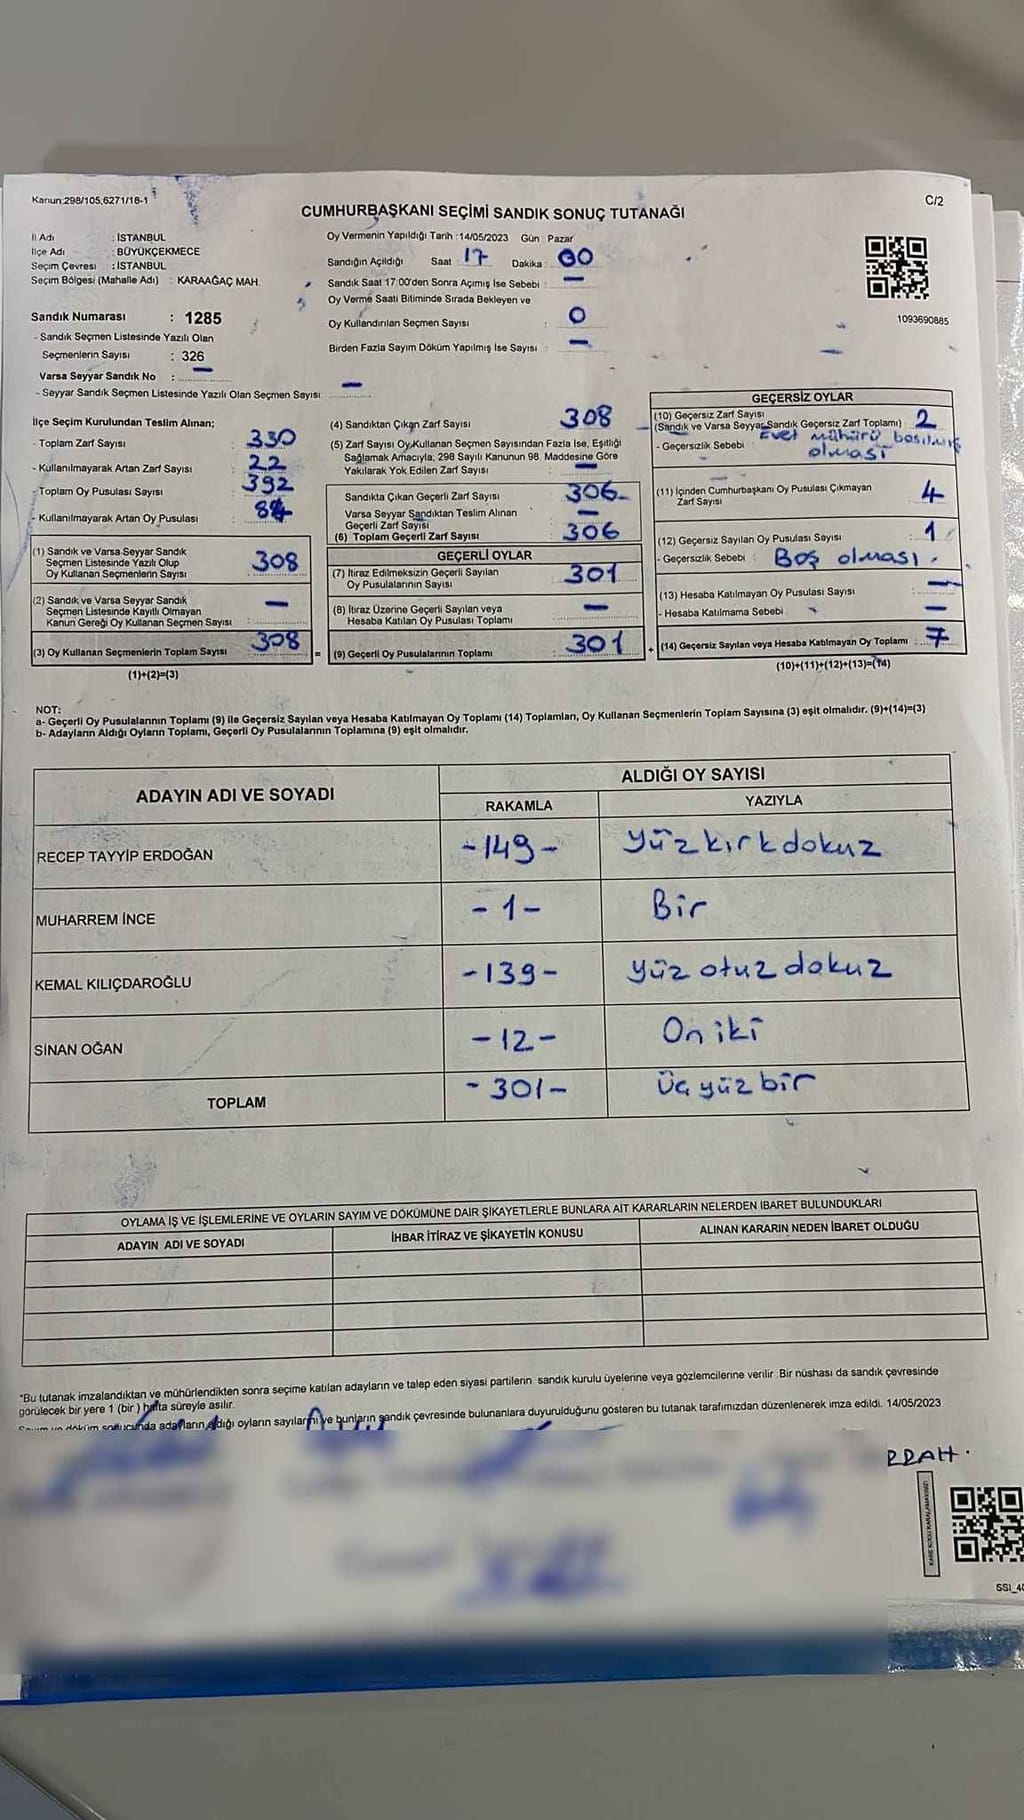 Kanun:298/105,6271/16-1
C/2
CUMHURBAŞKANI SEÇİMİ SANDIK SONUÇ TUTANAĞI
İl Adı : İSTANBUL
İlçe Adı : BÜYÜKÇEKMECE
Seçim Çevresi : İSTANBUL
Seçim Bölgesi (Mahalle Adı) : KARAAĞAÇ MAH.
Sandık Numarası : 1285
- Sandık Seçmen Listesinde Yazılı Olan
Seçmenlerin Sayısı : 326
Varsa Seyyar Sandık No : —
- Seyyar Sandık Seçmen Listesinde Yazılı Olan Seçmen Sayısı —
Oy Vermenin Yapıldığı Tarih :14/05/2023 Gün : Pazar
Sandığın Açıldığı Saat 17 Dakika : 00
Sandık Saat 17:00'den Sonra Açımış İse Sebebi : —
Oy Verme Saati Bitiminde Sırada Bekleyen ve
Oy Kullandırılan Seçmen Sayısı : 0
Birden Fazla Sayım Döküm Yapılmış İse Sayısı : —
1093690885
İlçe Seçim Kurulundan Teslim Alınan;
- Toplam Zarf Sayısı : 330
- Kullanılmayarak Artan Zarf Sayısı : 22
- Toplam Oy Pusulası Sayısı : 392
- Kullanılmayarak Artan Oy Pusulası :
(1) Sandık ve Varsa Seyyar Sandık
Seçmen Listesinde Yazılı Olup
Oy Kullanan Seçmenlerin Sayısı : 308
(2) Sandık ve Varsa Seyyar Sandık
Seçmen Listesinde Kayıtlı Olmayan
Kanun Gereği Oy Kullanan Seçmen Sayısı : —
(3) Oy Kullanan Seçmenlerin Toplam Sayısı : 308
(1)+(2)=(3)
=
(4) Sandıktan Çıkan Zarf Sayısı : 308
(5) Zarf Sayısı Oy Kullanan Seçmen Sayısından Fazla İse, Eşitliği
Sağlamak Amacıyla, 298 Sayılı Kanunun 98. Maddesine Göre
Yakılarak Yok Edilen Zarf Sayısı : —
Sandıkta Çıkan Geçerli Zarf Sayısı : 306
Varsa Seyyar Sandıktan Teslim Alınan
Geçerli Zarf Sayısı : —
(6) Toplam Geçerli Zarf Sayısı : 306
GEÇERLİ OYLAR
(7) İtiraz Edilmeksizin Geçerli Sayılan
Oy Pusulalarının Sayısı : 301
(8) İtiraz Üzerine Geçerli Sayılan veya
Hesaba Katılan Oy Pusulası Toplamı : —
(9) Geçerli Oy Pusulalarının Toplamı : 301
+
GEÇERSİZ OYLAR
(10) Geçersiz Zarf Sayısı
(Sandık ve Varsa Seyyar Sandık Geçersiz Zarf Toplamı) : 2
- Geçersizlik Sebebi : Evet mühürü basılmış
olması
(11) İçinden Cumhurbaşkanı Oy Pusulası Çıkmayan
Zarf Sayısı : 4
(12) Geçersiz Sayılan Oy Pusulası Sayısı : 1
- Geçersizlik Sebebi : Boş olması.
(13) Hesaba Katılmayan Oy Pusulası Sayısı : —
- Hesaba Katılmama Sebebi : —
(14) Geçersiz Sayılan veya Hesaba Katılmayan Oy Toplamı : 7
(10)+(11)+(12)+(13)=(14)
NOT:
a- Geçerli Oy Pusulalarının Toplamı (9) ile Geçersiz Sayılan veya Hesaba Katılmayan Oy Toplamı (14) Toplamları, Oy Kullanan Seçmenlerin Toplam Sayısına (3) eşit olmalıdır. (9)+(14)=(3)
b- Adayların Aldığı Oyların Toplamı, Geçerli Oy Pusulalarının Toplamına (9) eşit olmalıdır.
ADAYIN ADI VE SOYADI
ALDIĞI OY SAYISI
RAKAMLA YAZIYLA
RECEP TAYYİP ERDOĞAN -149- Yüzkırkdokuz
MUHARREM İNCE -1- Bir
KEMAL KILIÇDAROĞLU -139- yüz otuz dokuz
SİNAN OĞAN -12- On iki
TOPLAM -301- Üç yüz bir
OYLAMA İŞ VE İŞLEMLERİNE VE OYLARIN SAYIM VE DÖKÜMÜNE DAİR ŞİKAYETLERLE BUNLARA AİT KARARLARIN NELERDEN İBARET BULUNDUKLARI
ADAYIN ADI VE SOYADI İHBAR İTİRAZ VE ŞİKAYETİN KONUSU ALINAN KARARIN NEDEN İBARET OLDUĞU
*Bu tutanak imzalandıktan ve mühürlendikten sonra seçime katılan adayların ve talep eden siyasi partilerin sandık kurulu üyelerine veya gözlemcilerine verilir. Bir nüshası da sandık çevresinde
görülecek bir yere 1 (bir) hafta süreyle asılır.
Sayım ve döküm sonucunda adayların aldığı oyların sayılarını ve bunların sandık çevresinde bulunanlara duyurulduğunu gösteren bu tutanak tarafımızdan düzenlenerek imza edildi. 14/05/2023
KARE KODU KARALAMAYINIZ!